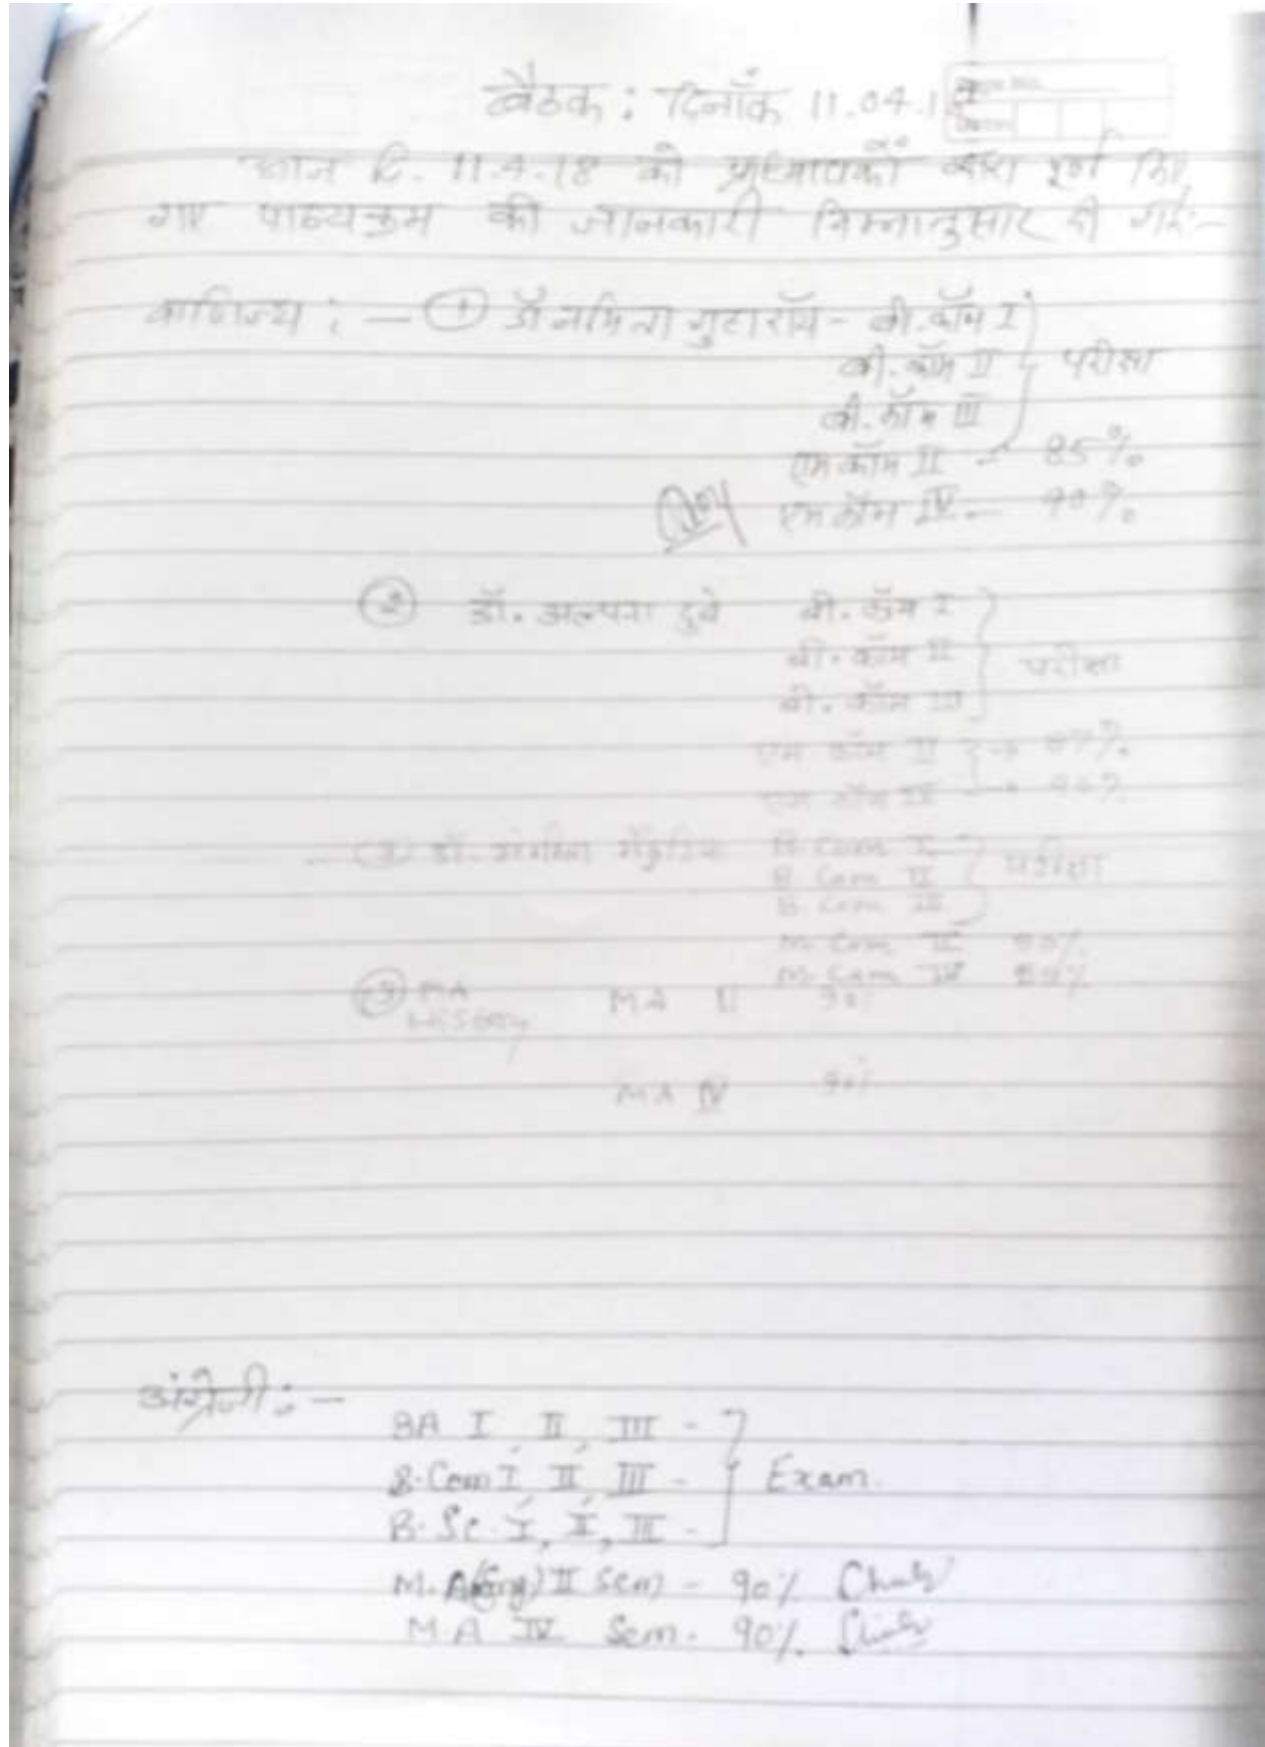 बैठक : दिनाँक 11.04.18
आज दि. 11.4.18 को प्राध्यापकों द्वारा पूर्ण किए
गए पाठ्यक्रम की जानकारी निम्नानुसार दी गई:-
वाणिज्य : — ① डॉ. नमिता गुहा रॉय - बी. कॉम I
बी. कॉम II } परीक्षा
बी. कॉम III
एम कॉम II - 85%
एम कॉम IV - 90%
② डॉ. अल्पना दुबे बी. कॉम I
बी. कॉम II } परीक्षा
बी. कॉम III
एम कॉम II →
एम कॉम IV →
③ डॉ. B. Com I
B. Com II } परीक्षा
B. Com III
M. Com II
M. Com IV
MA MA II 90%
History
MA IV 90%
अंग्रेजी : —
BA I, II, III -
B. Com I, II, III - } Exam.
B. Sc. I, II, III -
M. A (Eng) II Sem - 90%
M.A IV Sem - 90%